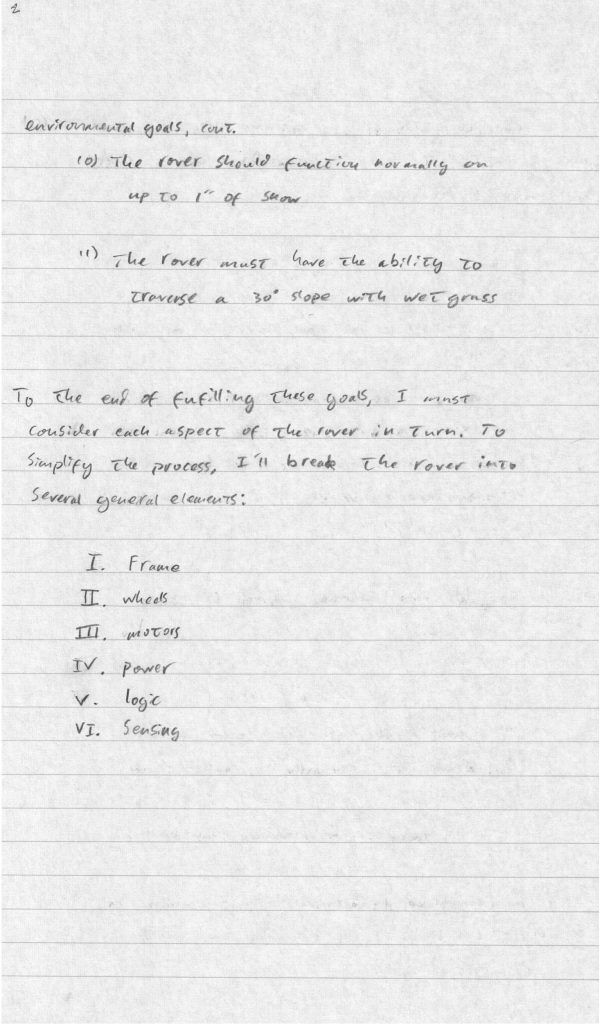 2
environmental goals, cont.
10) The rover should function normally on
up to 1" of snow
11) The rover must have the ability to
traverse a 30° slope with wet grass
To the end of fufilling these goals, I must
consider each aspect of the rover in turn. To
simplify the process, I'll break the rover into
several general elements:
I. Frame
II. wheels
III. motors
IV. power
V. logic
VI. Sensing